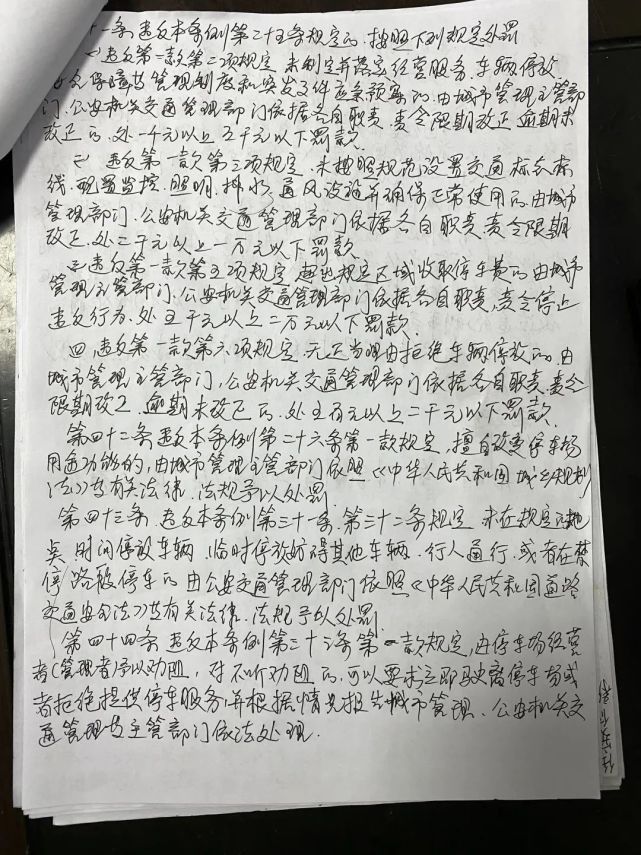 十一条 违反本条例第二十五条规定的,按照下列规定处罚
(一)违反第一款第二项规定,未制定并落实经营服务、车辆停放、
安全保障等管理制度和突发事件应急预案的,由城市管理主管部
门、公安机关交通管理部门依据各自职责,责令限期改正,逾期未
改正的,处一千元以上五千元以下罚款
(二)违反第一款第三项规定,未按照规范设置交通标志标
线,配置监控、照明、排水、通风设施并确保正常使用的,由城市
管理部门、公安机关交通管理部门依据各自职责,责令限期
改正,处二千元以上一万元以下罚款
(三)违反第一款第五项规定,规定区域收取停车费的,由城市
管理主管部门、公安机关交通管理部门依据各自职责,责令停止
违反行为,处五千元以上二万元以下罚款
四,违反第一款第六项规定,无正当理由拒绝车辆停放的,由
城市管理主管部门,公安机关交通管理部门依据各自职责,责令
限期改正,逾期未改正的,处五百元以上二千元以下罚款.
第四十二条 违反本条例第二十六条第一款规定,擅自改变停车场
用途功能的,由城市管理主管部门依照《中华人民共和国城乡规划
法》等有关法律、法规予以处罚
第四十三条 违反本条例第三十一条,第三十二条规定,未在规定的地
点、时间停放车辆,临时停放妨碍其他车辆、行人通行,或者在禁
停路段停车的,由公安交通管理部门依照《中华人民共和国道路
交通安全法》等有关法律、法规予以处罚
第四十四条 违反本条例第三十三条第一款规定,由停车场经营
者(管理者)予以劝阻,对不听劝阻的,可以要求立即驶离停车场或
者拒绝提供停车服务,并根据情况报告城市管理、公安机关交
通管理等主管部门依法处理.